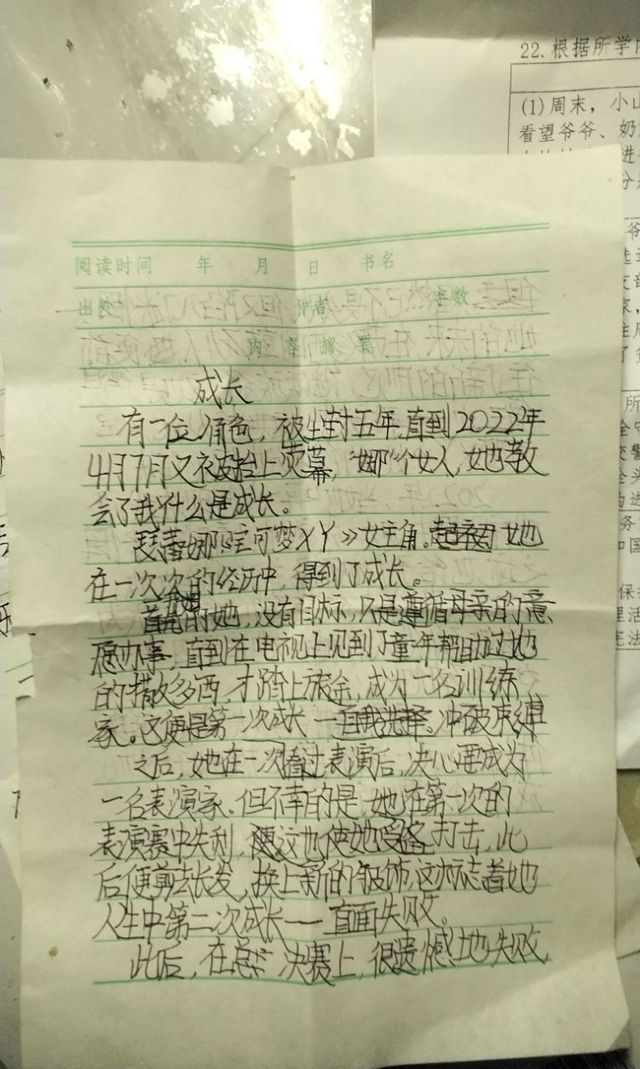 22.根据所学
(1)周末，小山
看望爷爷、奶
阅读时间 年 月 日 书名
出处 作者 字数
内容摘要
成长
有一位角色，被尘封五年，直到2022年
4月7月又被抬上荧幕，“娜”个女人，她教
会了我什么是成长。
瑟蕾娜《宝可梦XY》女主角。她
在一次次的经历中，得到了成长。
的她，没有目标，只是遵循母亲的意
愿办事，直到在电视上见到了童年帮助过她
的 才踏上旅途，成为一名训练
家。这便是第一次成长——自我选择，冲破束缚
之后，她在一次看过表演后，决心要成为
一名表演家、但不幸的是，她在第一次的
表演赛中失利，这也使她受 打击，此
后便剪去长发，换上新的服饰，这标志着她
人生中第二次成长——直面失败。
此后，在 决赛上，很遗憾地失败，